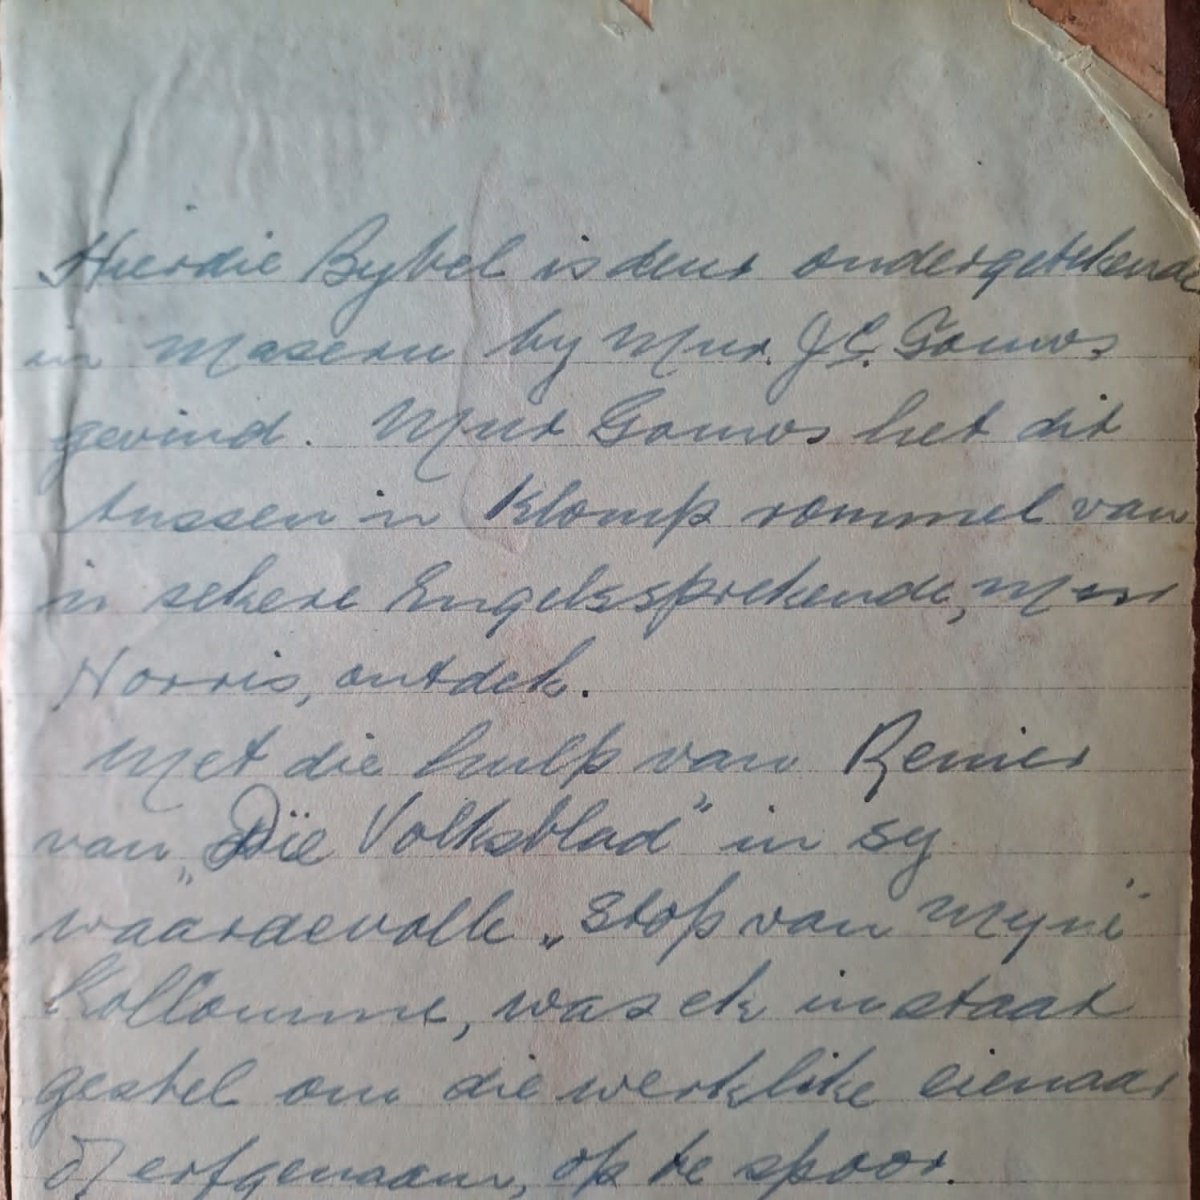 Hierdie Bybel is deur ondergetekende
in Maseru by Mnr. J. C. Gouws
gevind. Mnr Gouws het dit
tussen 'n klomp rommel van
'n sekere Engelssprekende, Mnr
Norris, ontdek.
Met die hulp van Renier
van „Die Volksblad" in sy
waardevolle „Stof van Myne"
Kollomme, was ek instaat
gestel om die werklike eienaar
of erfgenaam, op te spoor.